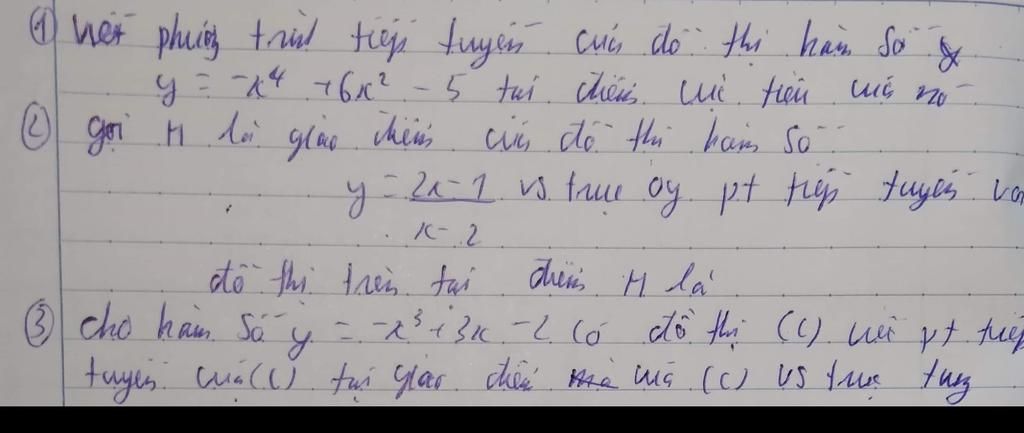 ① viết phương trình tiếp tuyến của đồ thị hàm số
y = -x⁴ + 6x² - 5 tại điểm cực tiểu của nó
② gọi H là giao điểm của đồ thị hàm số
y = \frac{2x-1}{x-2} vs trục oy pt tiếp tuyến với
đồ thị trên tại điểm H là
③ cho hàm số y = -x³ + 3x - 2 có đồ thị (C) viết pt tiếp
tuyến của (C) tại giao điểm của (C) vs trục tung